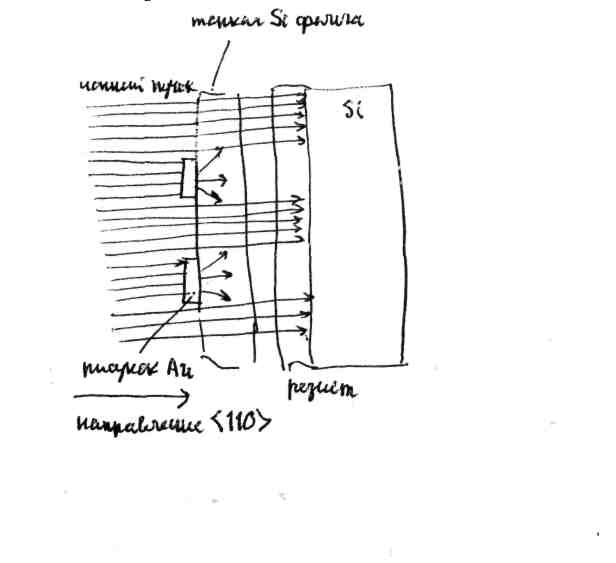 тонкая Si фольга
ионный пучок
Si
рисунок Au
резист
направление <110>